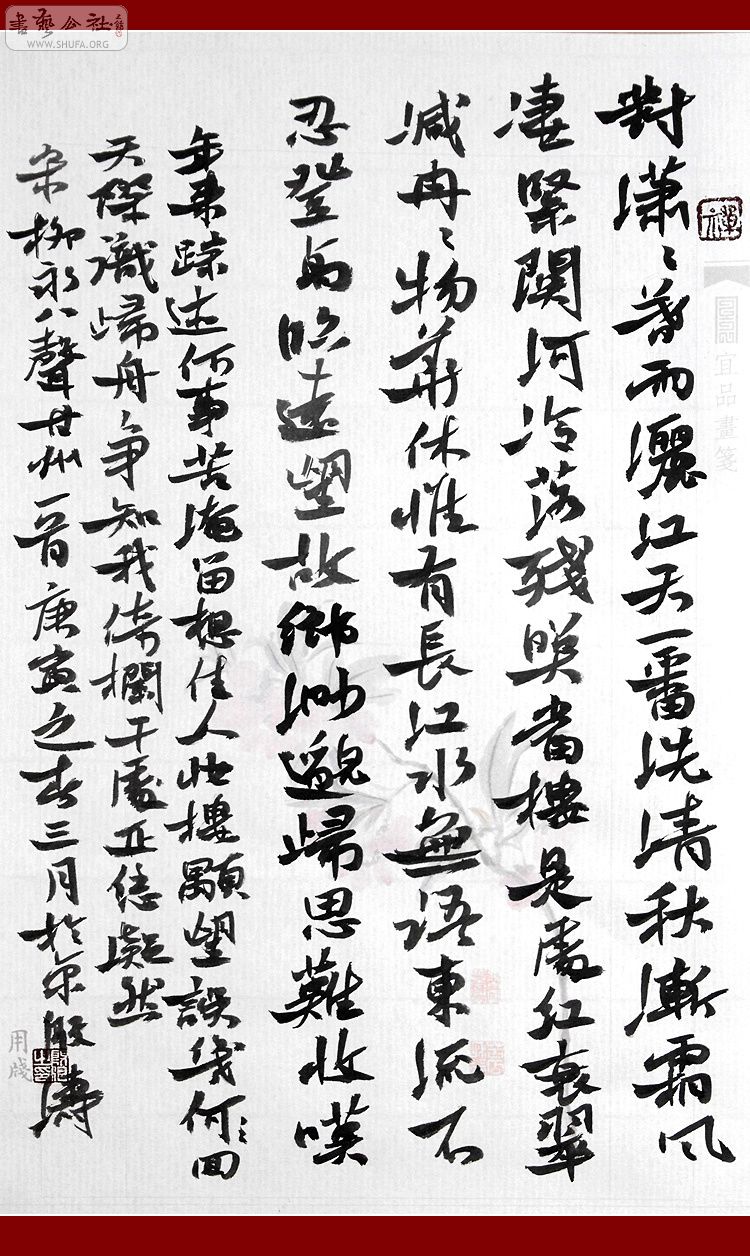 書藝公社
WWW.SHUFA.ORG
對瀟〻暮雨灑江天一番洗清秋漸霜風
凄緊關河冷落殘照當樓是處紅衰翠
減冉〻物華休惟有長江水無語東流不
忍登高臨遠望故鄉渺邈歸思難收嘆
年來踪迹何事苦淹留想佳人妝樓顒望誤幾何〻回
天際識歸舟爭知我倚欄干處正恁凝然
宋柳永八聲甘州一首庚寅之春三月於京殷濤
宜品畫箋
用牋